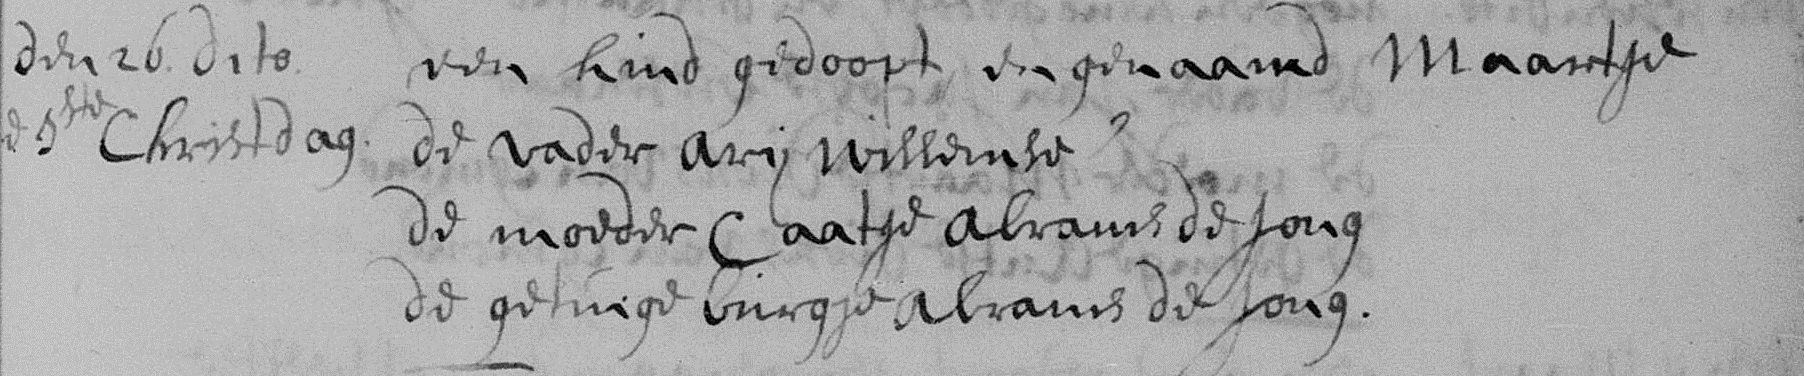 den 26. dito. een kind gedoopt en genaamd Maartje
Christdag. de vader Arij Willemse
de moeder Caatje Abrams de Jong
de getuige burgje Abrams de Jong.